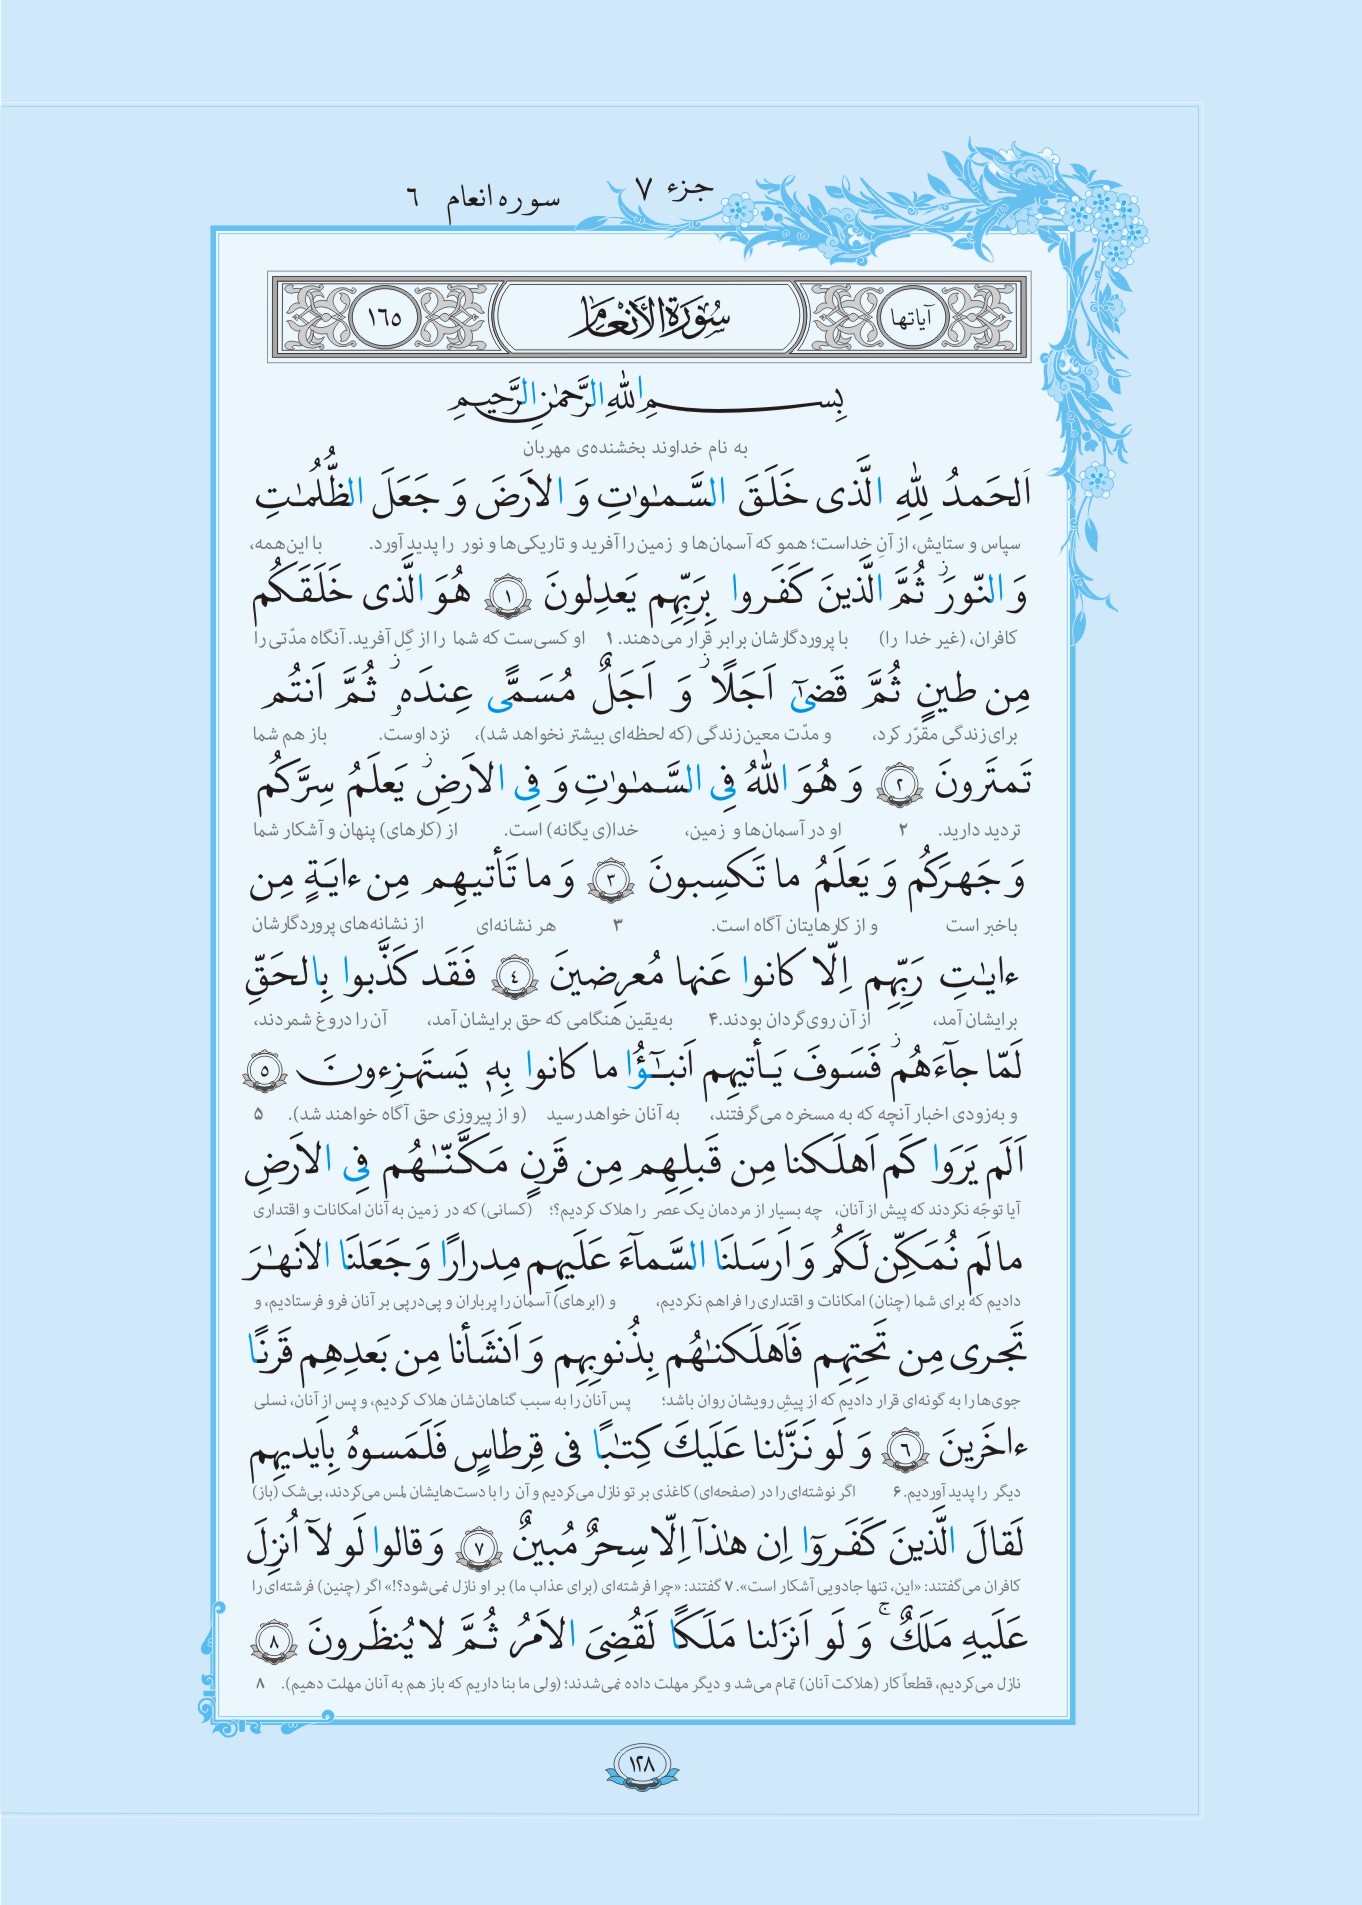 جزء ۷
سوره انعام ٦
آیاتها
سُوۡرَةُ الأَنۡعَامِ
١٦٥
بِسمِ اللهِ الرَّحمٰنِ الرَّحیمِ
به نام خداوند بخشنده‌ی مهربان
اَلحَمدُ لِلّٰهِ الَّذی خَلَقَ السَّمـٰوٰتِ وَ الاَرضَ وَ جَعَلَ الظُّلُمـٰتِ
سپاس و ستایش، از آنِ خداست؛ همو که آسمان‌ها و زمین را آفرید و تاریکی‌ها و نور را پدید آورد. با این‌همه،
وَ النّورَ ز ثُمَّ الَّذینَ کَفَروا بِرَبِّهِم یَعدِلونَ ١ هُوَ الَّذی خَلَقَکُم
کافران، (غیر خدا را) با پروردگارشان برابر قرار می‌دهند. ۱ او کسی‌ست که شما را از گِل آفرید. آنگاه مدّتی را
مِن طینٍ ثُمَّ قَضیٰٓ اَجَلًا ز وَ اَجَلٌ مُسَمًّی عِندَهٗ ز ثُمَّ اَنتُم
برای زندگی مقرّر کرد، و مدّت معین زندگی (که لحظه‌ای بیشتر نخواهد شد)، نزد اوست. باز هم شما
تَمتَرونَ ٢ وَ هُوَ اللهُ فِی السَّمـٰوٰتِ وَ فِی الاَرضِ ز یَعلَمُ سِرَّکُم
تردید دارید. ۲ او در آسمان‌ها و زمین، خدا(ی یگانه) است. از (کارهای) پنهان و آشکار شما
وَ جَهرَکُم وَ یَعلَمُ ما تَکسِبونَ ٣ وَ ما تَأتیهِم مِن ءایَةٍ مِن
باخبر است و از کارهایتان آگاه است. ۳ هر نشانه‌ای از نشانه‌های پروردگارشان
ءایـٰتِ رَبِّهِم اِلّا کانوا عَنها مُعرِضینَ ٤ فَقَد کَذَّبوا بِالحَقِّ
برایشان آمد، از آن روی‌گردان بودند.۴ به‌یقین هنگامی که حق برایشان آمد، آن را دروغ شمردند،
لَمّا جآءَهُم ز فَسَوفَ یَأتیهِم اَنبـٰٓؤُا ما کانوا بِهٖ یَستَهزِءونَ ٥
و به‌زودی اخبار آنچه که به مسخره می‌گرفتند، به آنان خواهد رسید (و از پیروزی حق آگاه خواهند شد). ۵
اَلَم یَرَوا کَم اَهلَکنا مِن قَبلِهِم مِن قَرنٍ مَکَّنّـٰهُم فِی الاَرضِ
آیا توجّه نکردند که پیش از آنان، چه بسیار از مردمان یک عصر را هلاک کردیم؟؛ (کسانی) که در زمین به آنان امکانات و اقتداری
ما لَم نُمَکِّن لَکُم وَ اَرسَلنَا السَّمآءَ عَلَیهِم مِدرارًا وَ جَعَلنَا الاَنهـٰرَ
دادیم که برای شما (چنان) امکانات و اقتداری را فراهم نکردیم، و (ابرهای) آسمان را پرباران و پی‌درپی بر آنان فرو فرستادیم، و
تَجری مِن تَحتِهِم فَاَهلَکنـٰهُم بِذُنوبِهِم وَ اَنشَأنا مِن بَعدِهِم قَرنًا
جوی‌ها را به گونه‌ای قرار دادیم که از پیشِ رویشان روان باشد؛ پس آنان را به سبب گناهان‌شان هلاک کردیم، و پس از آنان، نسلی
ءاخَرینَ ٦ وَ لَو نَزَّلنا عَلَیكَ کِتـٰبًا فی قِرطاسٍ فَلَمَسوهُ بِاَیدیهِم
دیگر را پدید آوردیم.۶ اگر نوشته‌ای را در (صفحه‌ای) کاغذی بر تو نازل می‌کردیم و آن را با دست‌هایشان لمس می‌کردند، بی‌شک (باز)
لَقالَ الَّذینَ کَفَروٓا اِن هٰذآ اِلّا سِحرٌ مُبینٌ ٧ وَ قالوا لَو لآ اُنزِلَ
کافران می‌گفتند: «این، تنها جادویی آشکار است». ۷ گفتند: «چرا فرشته‌ای (برای عذاب ما) بر او نازل نمی‌شود؟!» اگر (چنین) فرشته‌ای را
عَلَیهِ مَلَكٌ ج وَ لَو اَنزَلنا مَلَکًا لَقُضِیَ الاَمرُ ثُمَّ لا یُنظَرونَ ٨
نازل می‌کردیم، قطعاً کار (هلاکت آنان) تمام می‌شد و دیگر مهلت داده نمی‌شدند؛ (ولی ما بنا داریم که باز هم به آنان مهلت دهیم). ۸
١٢٨